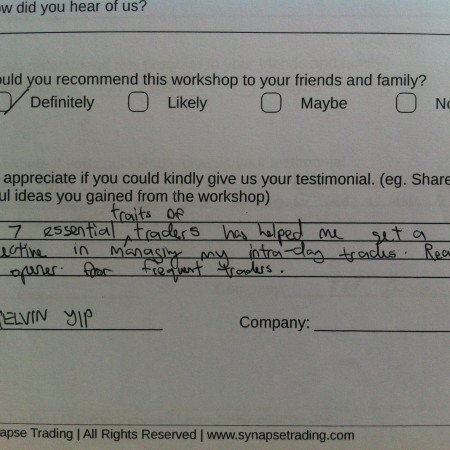 ow did you hear of us?
ould you recommend this workshop to your friends and family?
Definitely Likely Maybe No
appreciate if you could kindly give us your testimonial. (eg. Share
ul ideas you gained from the workshop)
traits of
7 essential traders has helped me get a
ective in managing my intra-day trades. Rea
opener for frequent traders.
ELVIN YIP
Company:
apse Trading | All Rights Reserved | www.synapsetrading.com